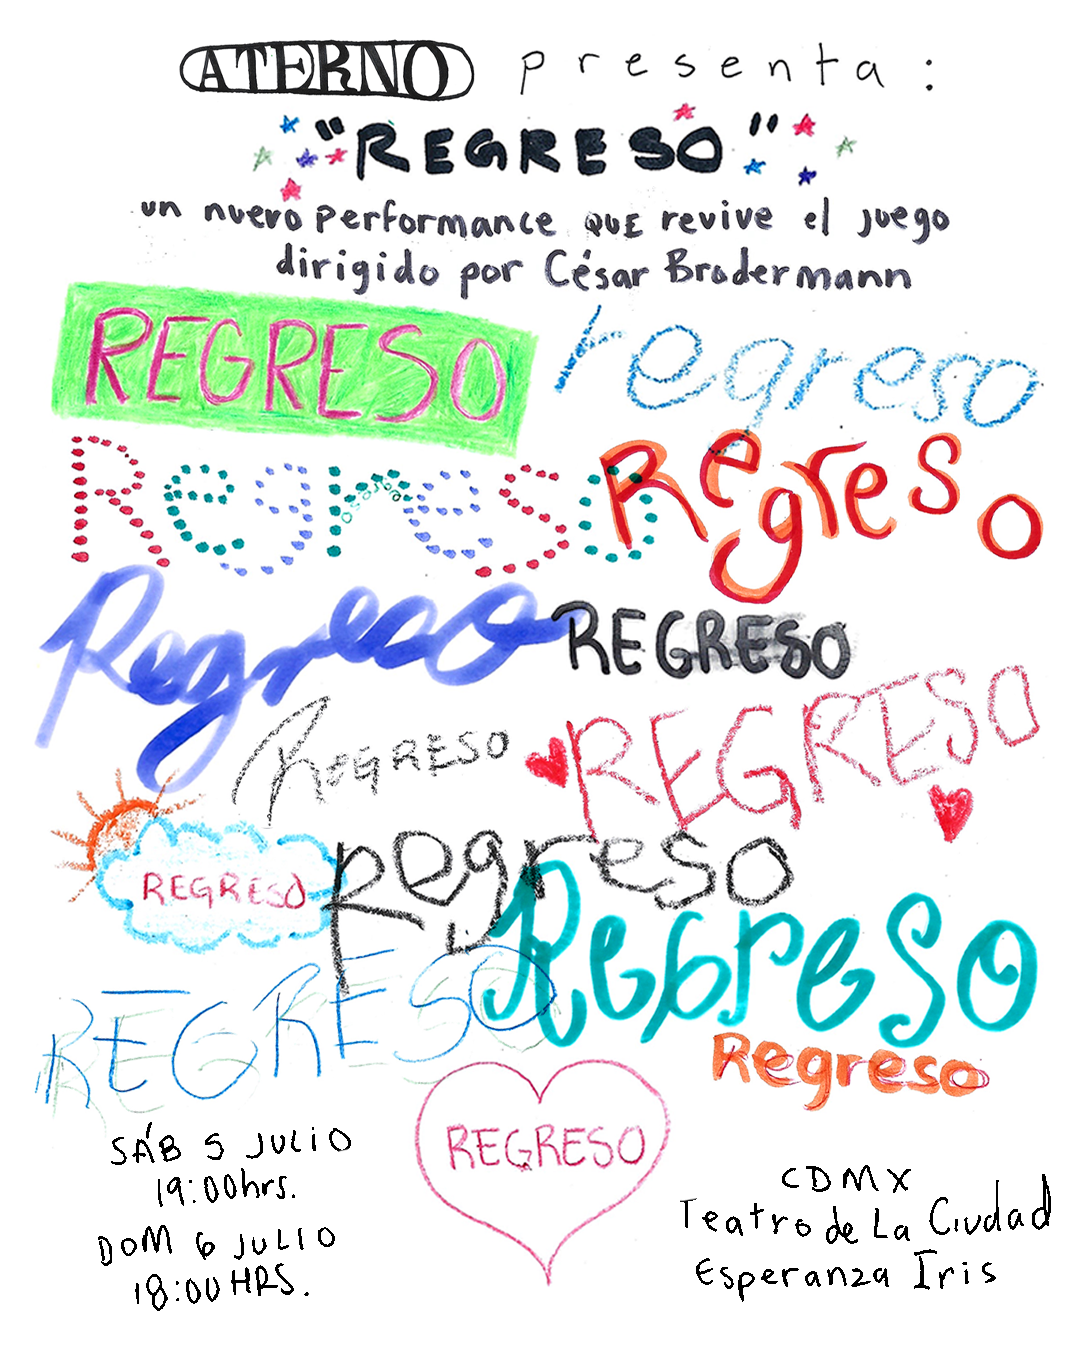 ATERNO presenta:
"REGRESO"
un nuevo performance QUE revive el juego
dirigido por César Brodermann
REGRESO regreso
Regreso Regreso
Regreso REGRESO
REGRESO REGRESO
REGRESO regreso
Regreso
REGRESO
Regreso
REGRESO
SÁB 5 JULIO
19:00hrs.
DOM 6 JULIO
18:00 HRS.
CDMX
Teatro de La Ciudad
Esperanza Iris